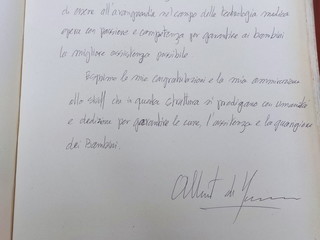 di essere all'avanguardia nel campo della tecnologia medica
opera con passione e competenza per garantire ai bambini
la migliore assistenza possibile.
Esprimo le mie congratulazioni e la mia ammirazione
allo staff che in questa struttura si prodigano con umanità
e dedizione per garantire le cure, l'assistenza e la guarigione
dei Bambini.
Albert di